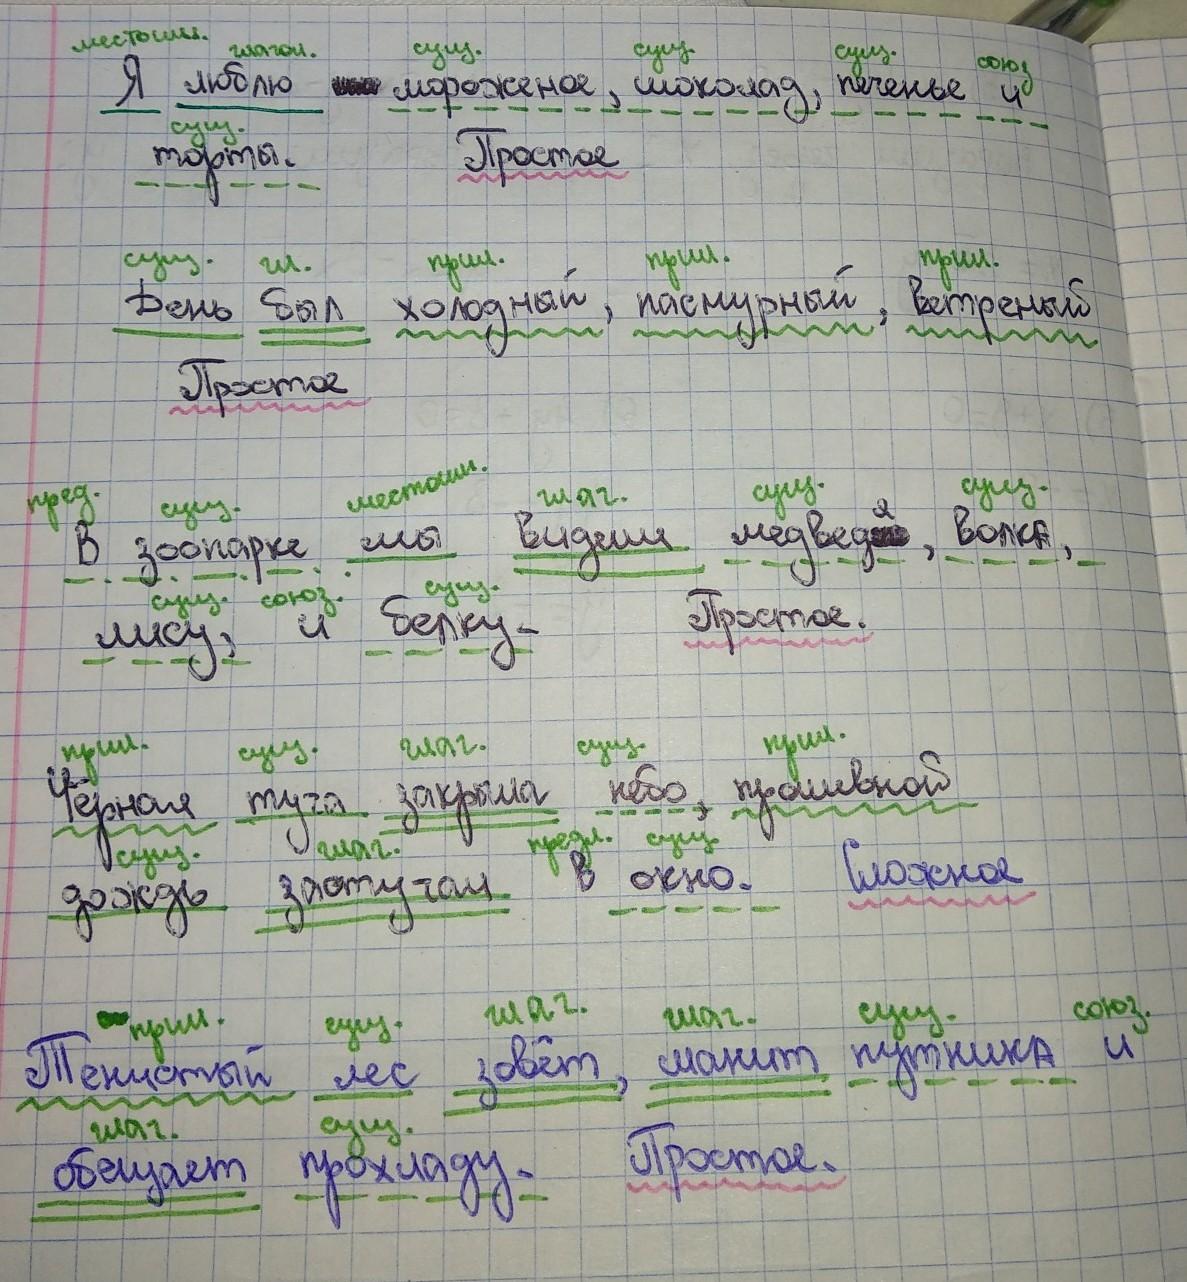 местоим. глагол. сущ. сущ. сущ. союз
Я люблю мороженое, шоколад, печенье и
сущ.
торты. Простое
сущ. гл. прил. прил. прил.
День был холодный, пасмурный, ветреный
Простое
пред. сущ. местоим. глаг. сущ. сущ.
В зоопарке мы видели медведя, волка,
сущ. союз. сущ.
лису, и белку. Простое.
прил. сущ. глаг. сущ. прил.
Чёрная туча закрыла небо, проливной
сущ. глаг. предл. сущ.
дождь застучал в окно. Сложное
прил. сущ. глаг. глаг. сущ. союз.
Тенистый лес зовёт, манит путника и
глаг. сущ.
обещает прохладу. Простое.